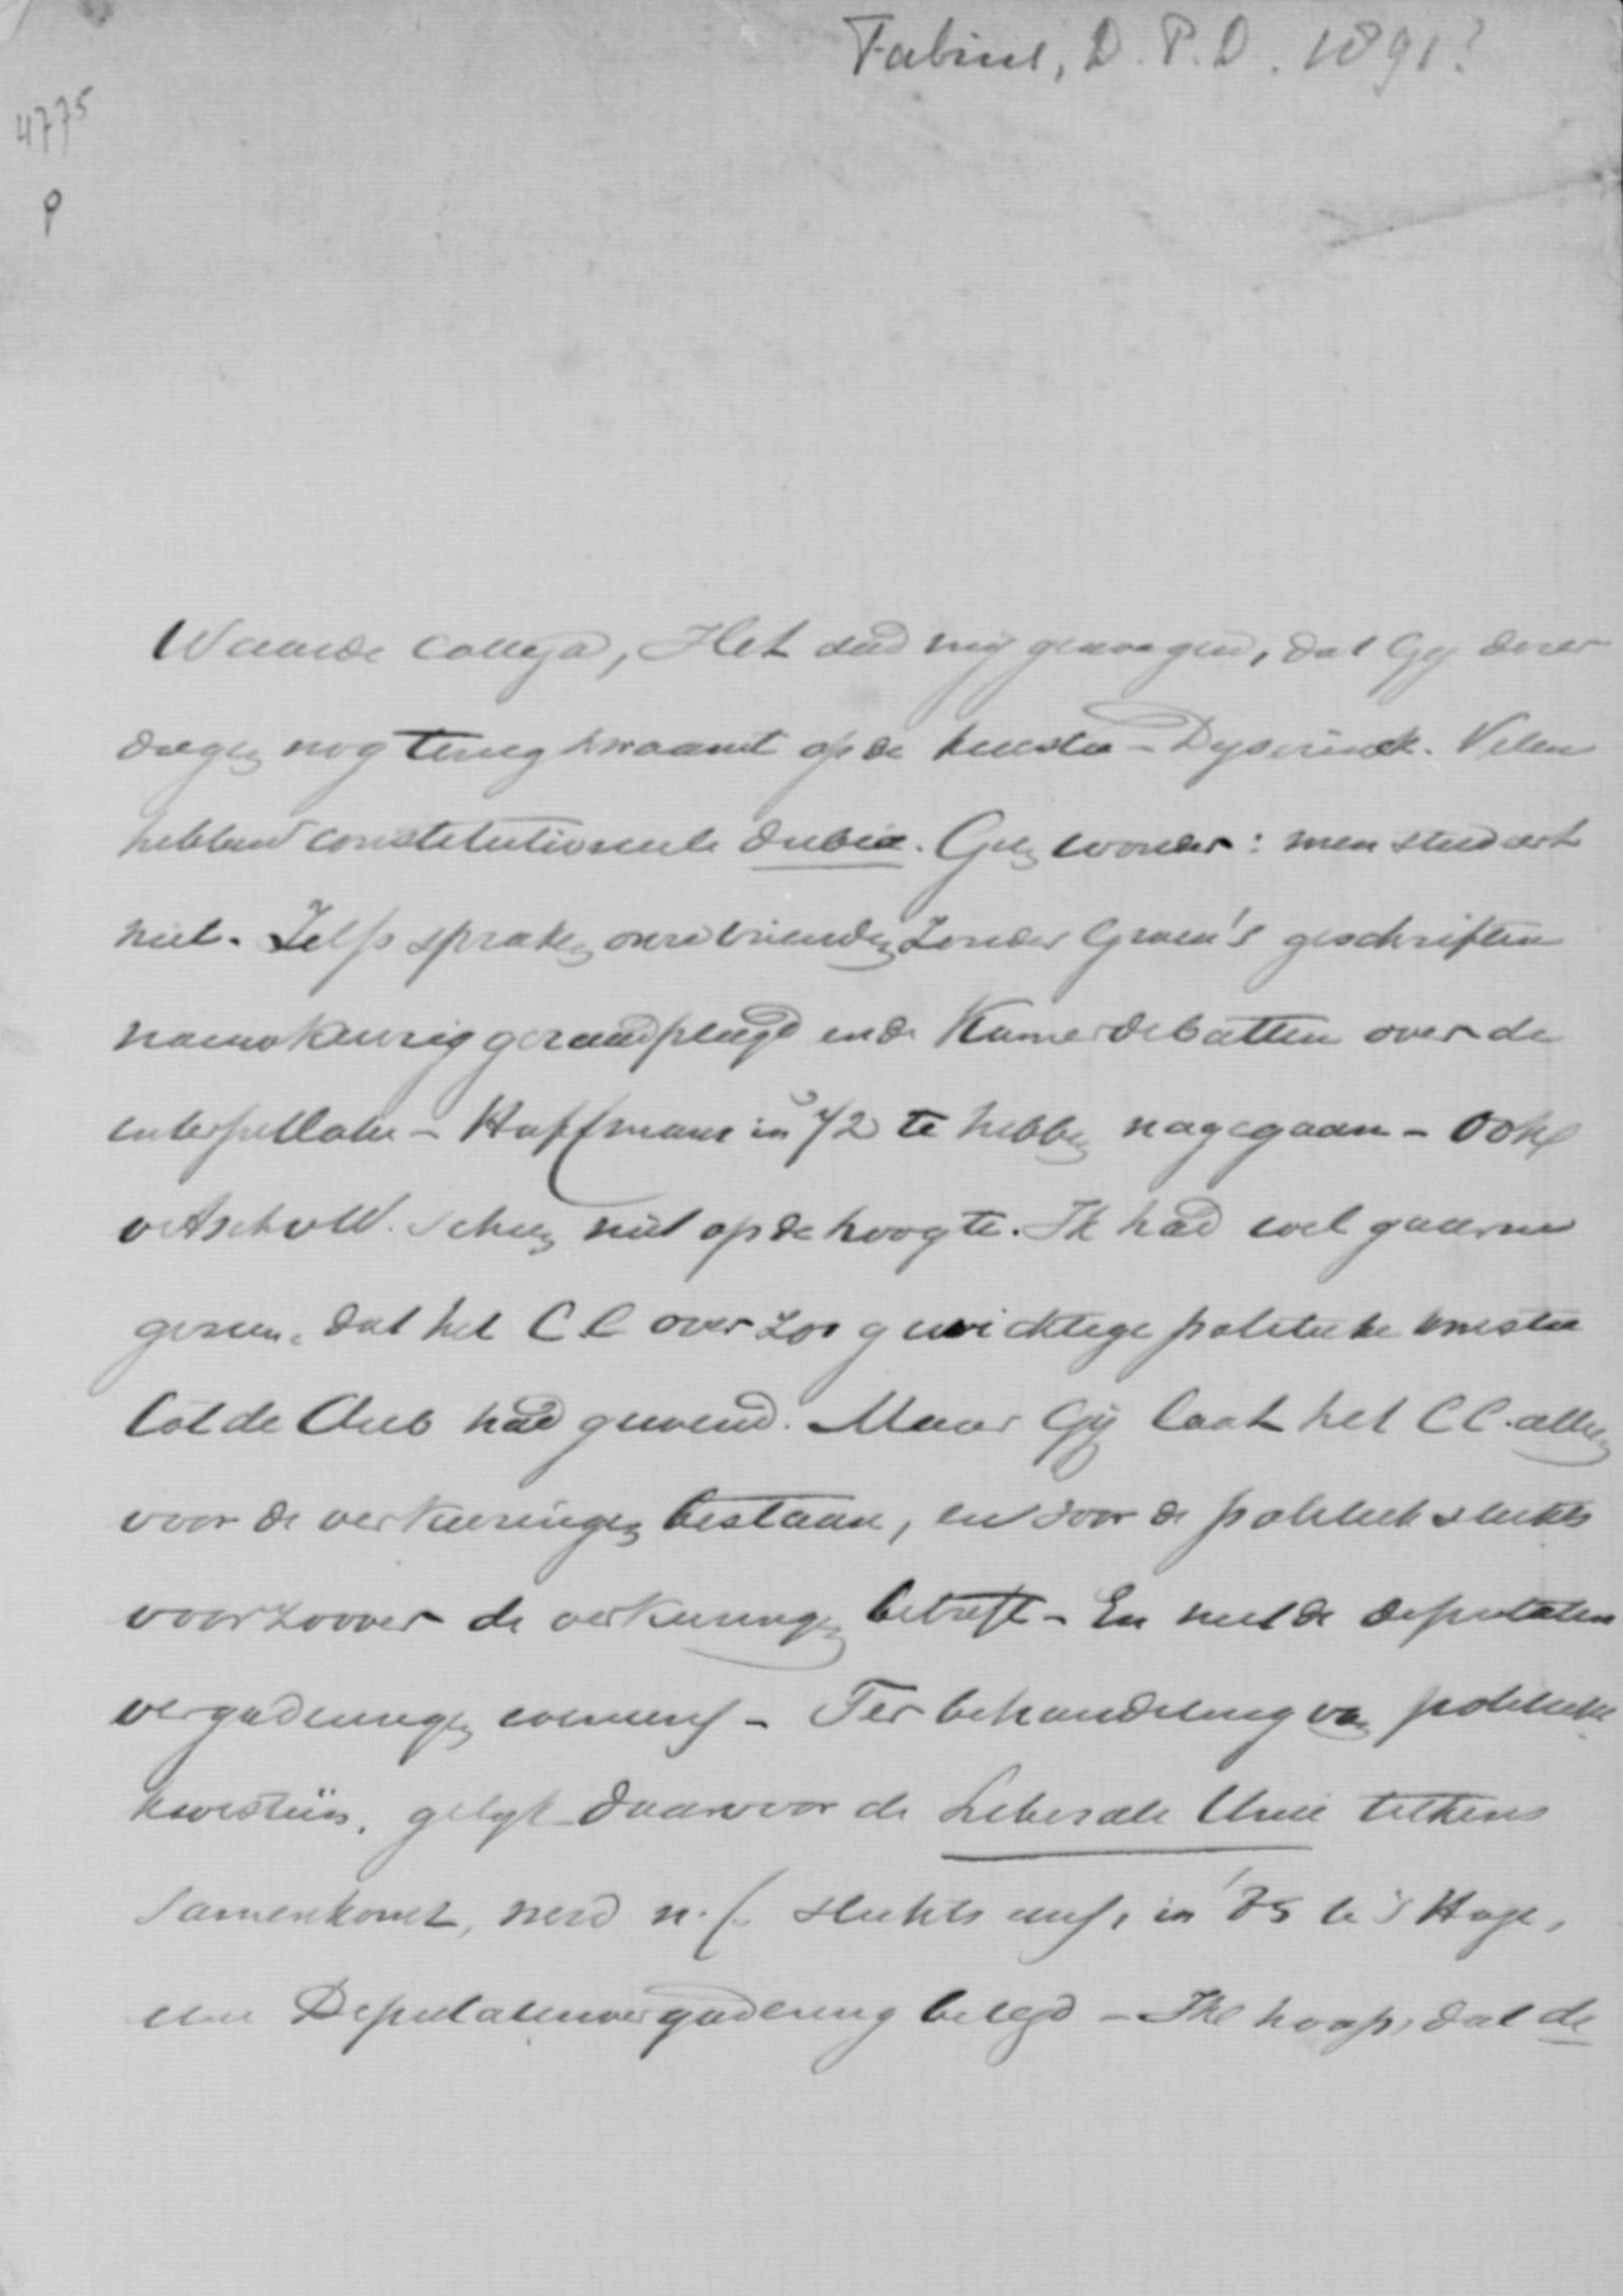 Fabius, D.P.D. 1891?
4775
P
Waarde Collega, Het deed mij genoegen, dat Gij dezer
dagen nog terugkwaamt op de kwestie - Dyserinck. Velen
hebben constitutioneele dubia. Geen wonder: men studeert
niet. Zelfs spraken onze vrienden zonder Groen's geschriften
nauwkeurig geraadpleegd en de Kamerdebatten over de
interpellatie - Haffmans in '72 te hebben nagegaan - Ook
v Asch v W. scheen niet op de hoogte. Ik had wel gaarne
gezien, dat het C.C over zoo gewichtige politieke kwestie
tot de Club had gewend. Maar Gij laat het C.C. alleen
voor de verkiezingen bestaan, en voor de politiek slechts
voorzoover de verkiezingen betreft - En met de deputaten
vergaderingen evenzoo - Ter behandeling van politieke
kwestiën, gelijk daarvoor de Liberale Unie telkens
samenkomt, werd n.f. slechts eens, in '75 te 's Hage,
een Deputatenvergadering belegd - Ik hoop, dat de